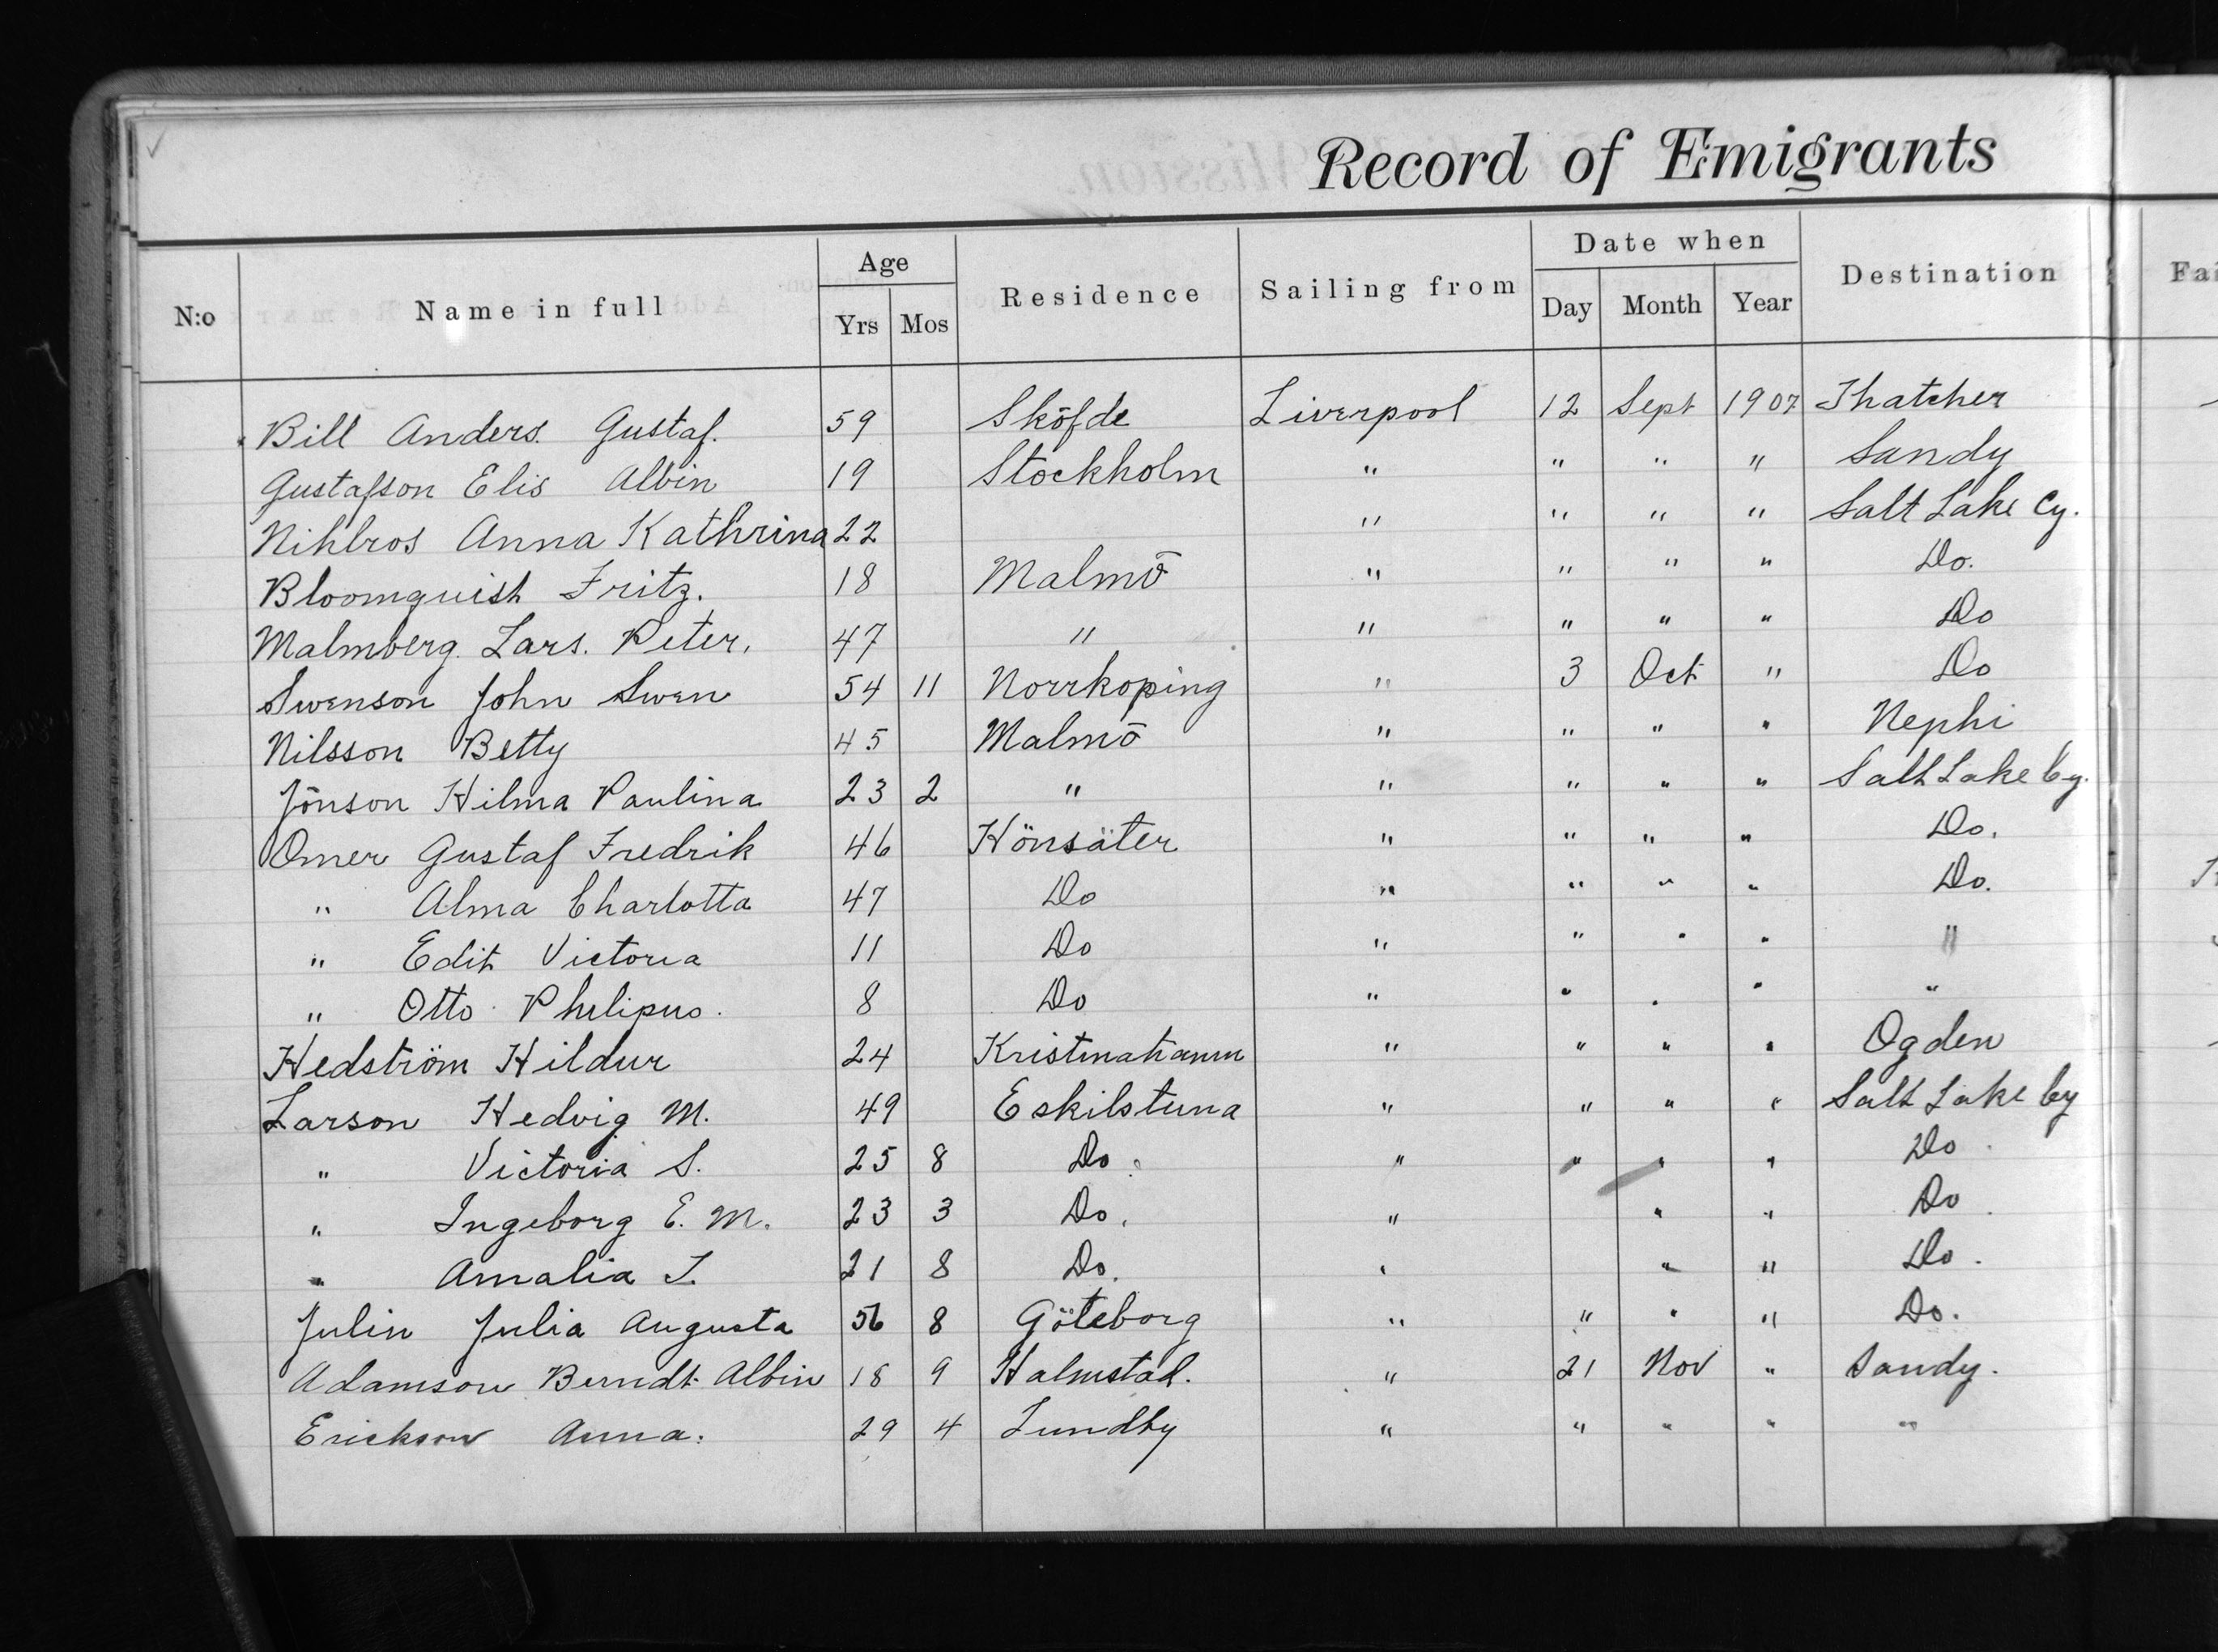 Record of Emigrants
N:o Name in full Age Yrs Mos Residence Sailing from Date when Day Month Year Destination Fai
Bill Anders. Gustaf. 59 Sköfde Liverpool 12 Sept 1907 Thatcher
Gustafson Elis Albin 19 Stockholm " " " " Sandy
Nihlros Anna Kathrina 22 " " " " Salt Lake Cy.
Bloomquist Fritz. 18 Malmö " " " " Do.
Malmberg. Lars. Peter. 47 " " " " " Do
Swenson John Swen 54 11 Norrkoping " 3 Oct " Do
Nilsson Betty 45 Malmö " " " " Nephi
Jönson Hilma Paulina 23 2 " " " " " Salt Lake Cy.
Omer Gustaf Fredrik 46 Hönsäter " " " " Do.
" Alma Charlotta 47 Do " " " " Do.
" Edit Victoria 11 Do " " " " "
" Otto Philipus. 8 Do " " " " "
Hedström Hildur 24 Kristinahamn " " " " Ogden
Larson Hedvig M. 49 Eskilstuna " " " " Salt Lake Cy
" Victoria S. 25 8 Do. " " " " Do.
" Ingeborg E. M. 23 3 Do. " " " Do.
" Amalia T. 21 8 Do. " " " Do.
Julin Julia Augusta 56 8 Göteborg " " " " Do.
Adamson Berndt Albin 18 9 Halmstad. " 21 Nov " Sandy.
Erickson Anna. 29 4 Lundby " " " " "